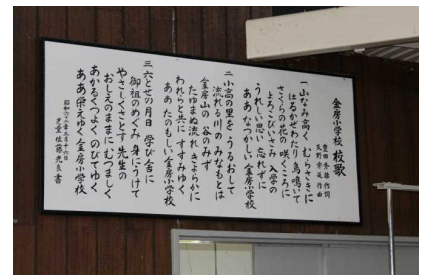 金房小学校 校歌
豊田秀雄 作詞
天野秀延 作曲
一 山なみ高く むらさきに
はるかぜわたり鳥鳴いて
さくらの花の 咲くころに
よろこびいさみ 入学の
うれしい思い 忘れずに
ああ なつかしい金房小学校
二 小高の里を うるおして
流れる川の みなもとは
金房山の 谷のみず
たゆまぬ流れ きよらかに
われらと共に すすみゆく
ああ たのもしい金房小学校
三 六とせの月日 学び舎に
御祖のめぐみ 身にうけて
やさしくさとす 先生の
おしえのままに むつましく
あかるくつよく のびてゆく
ああ栄えゆく金房小学校